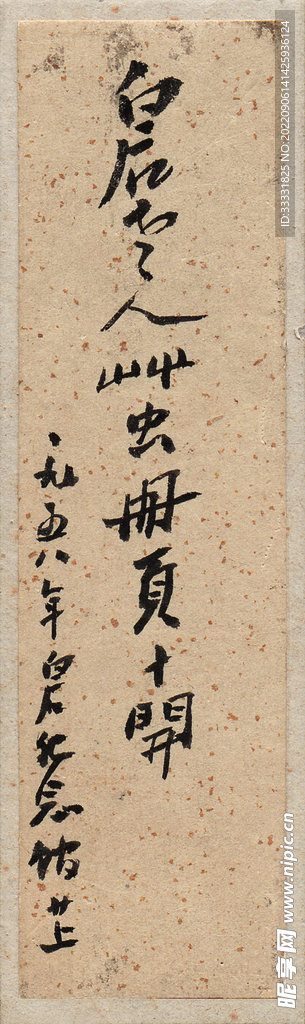 白石老人艸虫册頁十開
一九五八年白石紀念館廿上
ID:33331825 NO:20220906141425936124
昵享网 www.nipic.cn